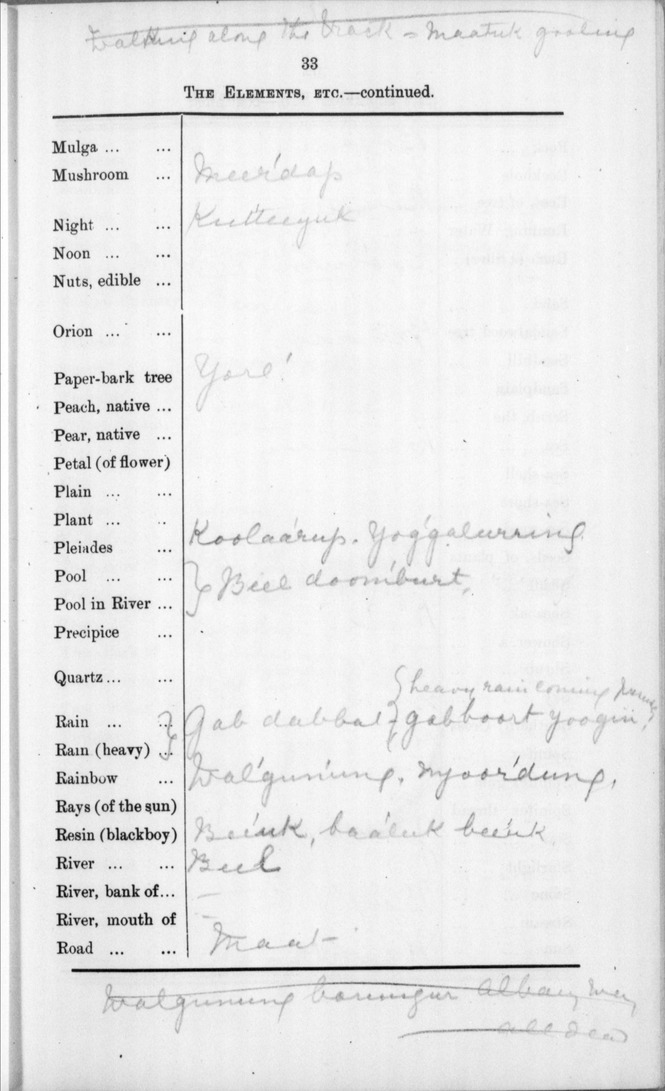 Walking along the track = Maatuk gooling
33
THE ELEMENTS, ETC.—continued.
Mulga ... ...
Mushroom ... Meer'dap
Night ... ... Kutteeyuk
Noon ... ...
Nuts, edible ...
Orion ... ...
Paper-bark tree Yorl!
Peach, native ...
Pear, native ...
Petal (of flower)
Plain ... ...
Plant ... ..
Pleiades ... Koolaárup. Yog'galurring
Pool ... ... } Beel doom'burt,
Pool in River ...
Precipice ...
Quartz ... ...
{ heavy rain coming
Rain ... ... } Gab dabbat } gabboort yoogin,
Rain (heavy) ...
Rainbow ... Wal'gun'ung, nyoor'dung,
Rays (of the sun)
Resin (blackboy) Bee'uk, baáluk bee'uk
River ... ... Beel
River, bank of ... —
River, mouth of —
Road ... ... Maat —
Walgunung Albany
all dead